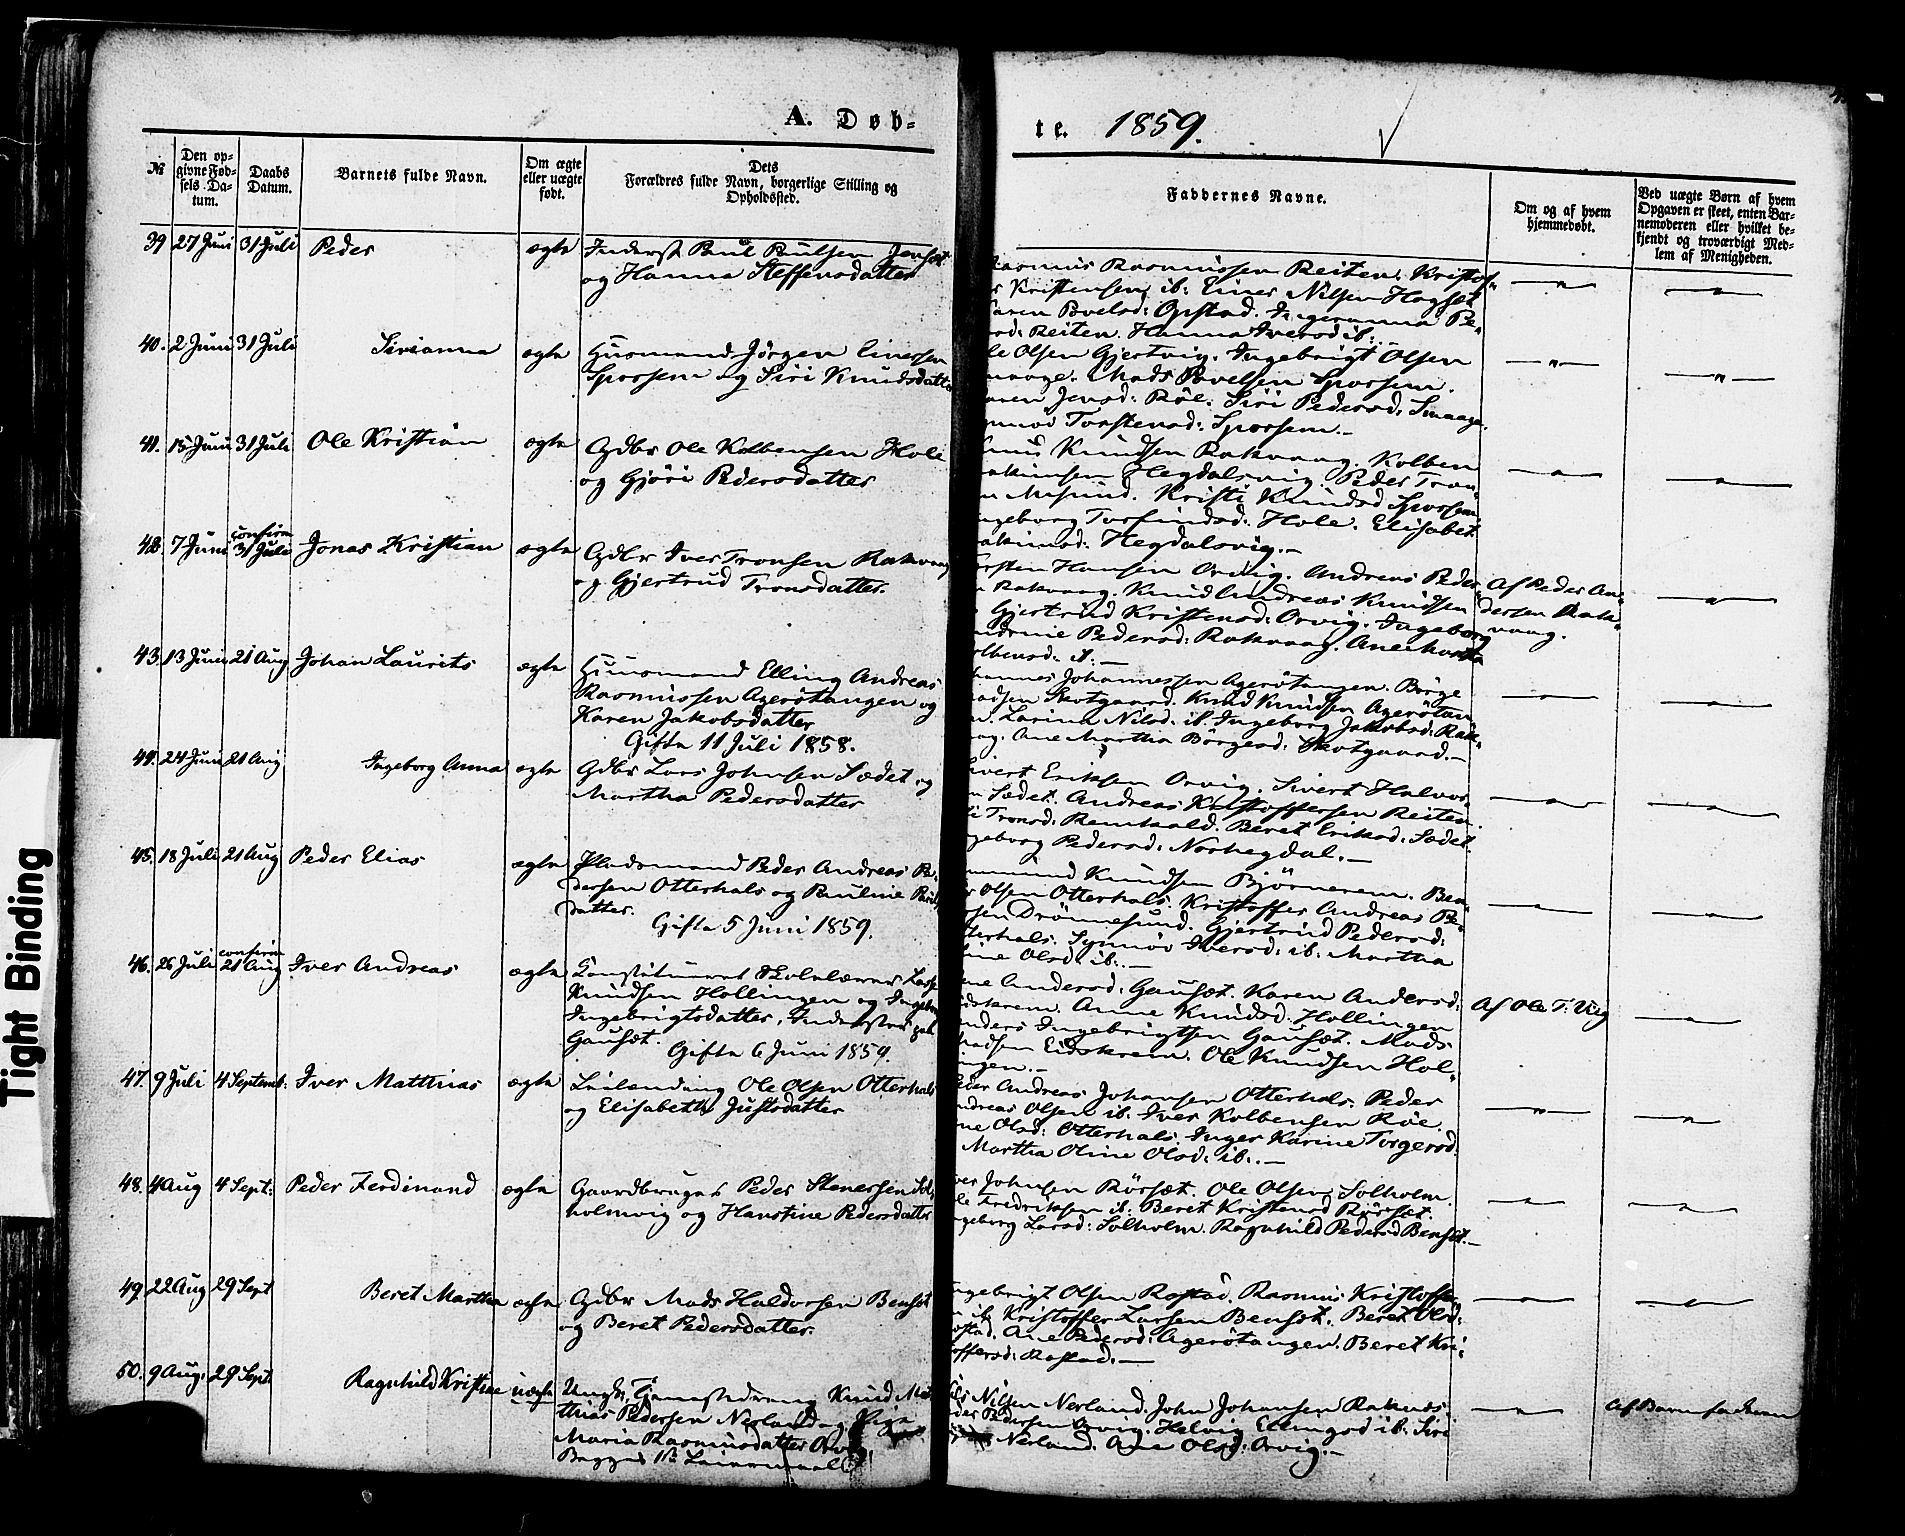 Tight Binding
A. Døb-
te. 1859.
№
Den op-
givne Fød-
sels-Da-
tum.
Daabs
Datum.
Barnets fulde Navn.
Om ægte
eller uægte
født.
Dets
Forældres fulde Navn, borgerlige Stilling og
Opholdssted.
Faddernes Navne.
Om og af hvem
hjemmedøbt.
Ved uægte Børn af hvem
Opgaven er skeet, enten Bar-
nemoderen eller hvilket be-
kjendt og troværdigt Med-
lem af Menigheden.
39 27 Juni 31 Juli Peder ægte Inderst Paul Paulsen
og Hanna Steffensdatter
Rasmus Rasmussen Reiten. Kristof-
Kristensen ib: Einer Nilsen Hogset
Povelsd: Opstad. Ingeranna Pe-
Reiten. Hanna Iversd ib:.
40. 2 Juni 31 Juli Sirianna ægte Husmand Jørgen Einersen
Sporsem og Siri Knudsdatter
Olsen Gjertvig. Ingebrigt Olsen
Mads Povelsen Sporsem.
Jensd: Röe. Siri Pedersd: Smaage.
Torstensd: Sporsem.-
41. 15 Juni 31 Juli Ole Kristian ægte Gdbr Ole Kolbensen Hole
og Gjöri Pedersdatter
Knudsen Rakvaag. Kolben
Hegdalsvig. Peder Tron-
Misund. Kristi Knudsd Sporsem
Torfindsd: Hole. Elisabet
Hegdalsvig.-
42. 7 Juni confirm
31 Juli Jonas Kristian ægte Gdbr Iver Tronsen Rakvaag
og Gjertrud Tronsdatter.
Hansen Orvig. Andreas Peder-
Rakvaag. Knud Andreas Knudsen
Gjertrud Kristensd: Orvig. Ingeborg
Pedersd: Rakvaag. Ane Martha
ib:-
Af Peder An-
dersen Rak-
vaag.
43. 13 Juni 21 Aug Johan Laurits ægte Husmand Elling Andreas
Rasmussen Agerötangen og
Karen Jakobsdatter
Gifte 11 Juli 1858.
Johannessen Agerötangen. Börge
Skotgaard. Knud Knudsen Agerötan-
Larina Nilsd: ib. Ingeborg Jakobsd: Rak-
Ane Martha Börgesd: Skotgaard.-
44. 24 Juni 21 Aug Ingeborg Anna ægte Gdbr Lars Johnsen Sædet og
Martha Pedersdatter
Sivert Eriksen Orvig. Sivert Halvor-
Sædet. Andreas Kristoffersen Reiten
Tronsd: Remkald. Beret Eriksd: Sædet.
Pedersd: Norhegdal.-
45. 18 Juli 21 Aug Peder Elias ægte Pladsmand Peder Andreas Pe-
dersen Otterhals og Pauline
datter.
Gifte 5 Juni 1859.
Knudsen Bjørnerem.
Olsen Otterhals. Kristoffer Andreas Pe-
Drönnesund. Gjertrud Pedersd:
Synnöv Iversd: ib. Martha
Olsd: ib:.-
46. 26 Juli confirm
21 Aug Iver Andreas ægte Konstitueret Skolelærer
Knudsen Hollingen og
Ingebrigtsdatter,
Gausæt.
Gifte 6 Juni 1859.
Andersd: Gausæt. Karen Andersd:
Anne Knudsd. Hollingen
Ingebrigtsen Gausæt. Mads
Eidskrem. Ole Knudsen Hol-
Af Ole T: Vig
47. 9 Juli 4 Septemb: Iver Matthias ægte Leilænding Ole Olsen Otterhals
og Elisabeth Justsdatter
Peder Andreas Johansen Otterhals. Peder
Andreas Olsen ib. Iver Kolbensen Röe.
Olsd: Otterhals. Inger Karine Torgersd.
Martha Oline Olsd: ib:.-
48. 4 Aug 4 Sept: Peder Ferdinand ægte Gaardbruger Peder Stenersen Sol-
holmvig og Hanstine Pedersdatter
Johnsen Rörsæt. Ole Olsen Solholm
Fredriksen ib: Beret Kristensd Rörsæt.
Larsd: Solholm. Ragnhild Pedersd Bensæt.-
49. 22 Aug 29 Sept Beret Martha ægte Gdbr Mads Haldorsen Bensæt
og Beret Pedersdatter.
Ingebrigt Olsen Rostad. Rasmus Kristoffer-
ib. Kristoffer Larsen Bensæt. Beret Olsd:
Ane Pedersd: Agerötangen. Beret Kri-
Rostad.-
50. 9 Aug: 29 Sept Ragnhild Kristine uægte Ungk. Tjenestedreng Knud Mat-
thias Pedersen Nerland og Pige
Maria Rasmusdatter Orvig.
Begges 1ste Leiermaal
Nilsen Nerland. John Johansen Raknes.
Pedersen Orvig. Helvig Ellingsd ib: Siri
Nerland. Ane Olsd: Orvig.-
Af Barnefaderen